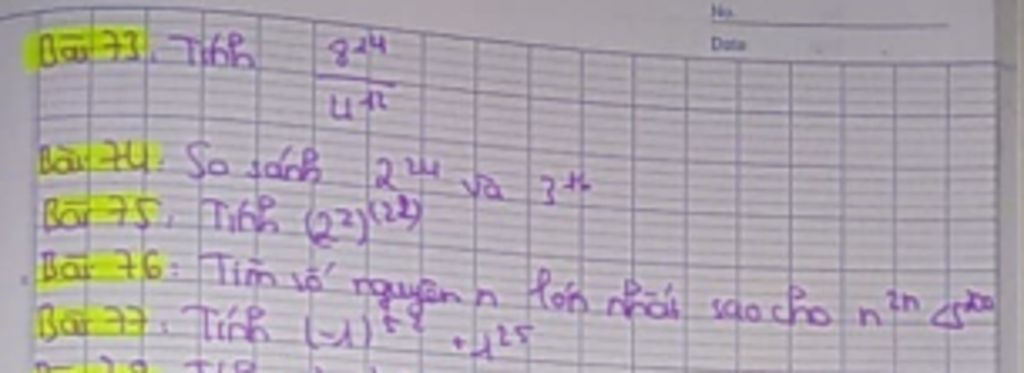 No.
Date
Bài 73. Tính 8^24 / 4^12
Bài 74. So sánh 2^24 và 3^16
Bài 75. Tính (2^2)^(2^2)
Bài 76: Tìm số nguyên n lớn nhất sao cho n^2n <
Bài 77. Tính (-1) + 1^25